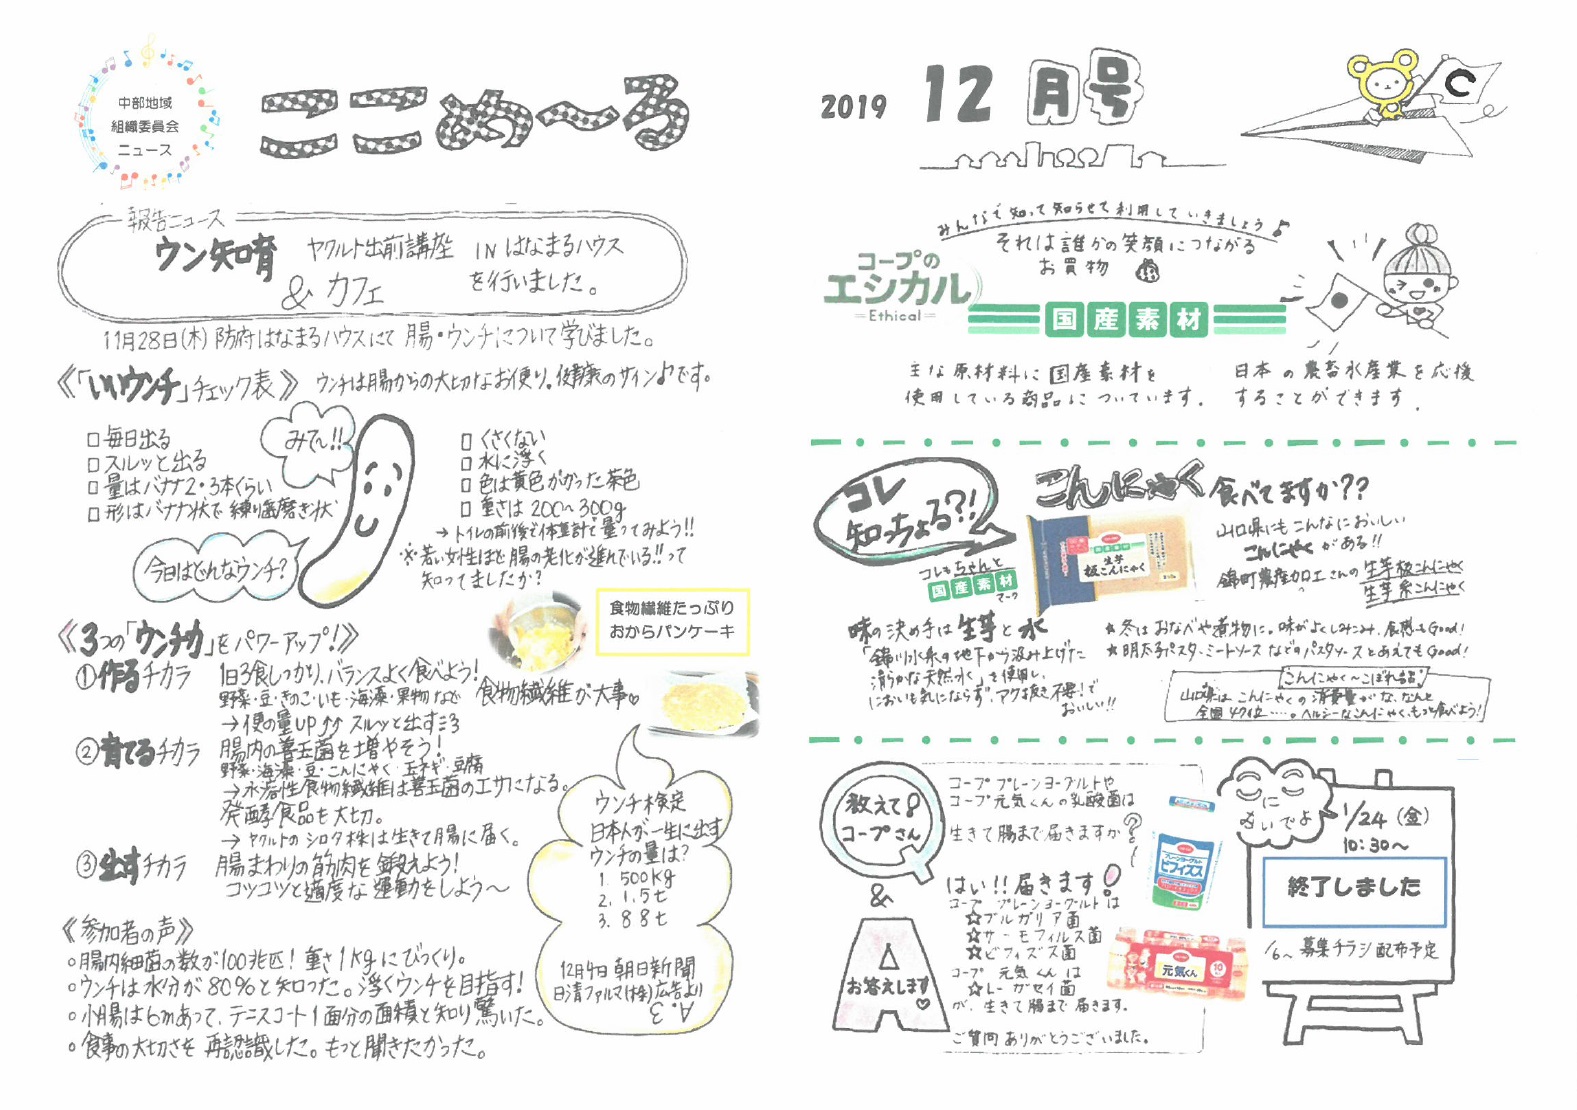 中部地域
組織委員会
ニュース
ここめ～る
報告ニュース
ウン知育 ヤクルト出前講座 INはなまるハウス
& カフェ を行いました。
11月28日(木) 防府はなまるハウスにて 腸・ウンチについて学びました。
《「いいウンチ」チェック表》 ウンチは腸からの大切なお便り。健康のサイン♪です。
□ 毎日出る
□ スルッと出る
□ 量はバナナ2・3本くらい
□ 形はバナナ状で練り歯磨き状
みて～!!
今日はどんなウンチ?
□ くさくない
□ 水に浮く
□ 色は黄色がかった茶色
□ 重さは 200～300g
→ トイレの前後で体重計で量ってみよう!!
※若い女性ほど腸の老化が進んでいる!!って
知ってましたか?
《3つの「ウンチ力」をパワーアップ!》
食物繊維たっぷり
おからパンケーキ
①作るチカラ 1日3食しっかり、バランスよく食べよう!
野菜・豆・きのこ・いも・海藻・果物など 食物繊維が大事♡
→ 便の量UP↑↑ スルッと出す
②育てるチカラ 腸内の善玉菌を増やそう!
野菜・海藻・豆・こんにゃく・玉ネギ・豆腐
→水溶性食物繊維は善玉菌のエサになる。
発酵食品も大切。
→ ヤクルトのシロタ株は生きて腸に届く。
③出すチカラ 腸まわりの筋肉を鍛えよう!
コツコツと適度な運動をしよう～
《参加者の声》
○腸内細菌の数が100兆匹! 重さ1kgにびっくり。
○ウンチは水分が80%と知った。浮くウンチを目指す!
○小腸は6mあって、テニスコート1面分の面積と知り驚いた。
○食事の大切さを再認識した。もっと聞きたかった。
ウンチ検定
日本人が一生に出す
ウンチの量は?
1. 500kg
2. 1.5t
3. 8.8t
12月4日 朝日新聞
日清ファルマ(株)広告より
A.3
2019 12月号
C
みんなで知って知らせて利用していきましょう♪
それは誰かの笑顔につながる
お買物
コープの
エシカル
Ethical
国産素材
主な原材料に国産素材を
使用している商品についています。
日本の農畜水産業を応援
することができます。
コレ
知っちょる?!
こんにゃく食べてますか??
山口県にもこんなにおいしい
こんにゃくがある!!
錦町農産加工さんの生芋板こんにゃく
生芋糸こんにゃく
コレもちゃんと
国産素材
マーク
国産素材
生芋
板こんにゃく
味の決め手は生芋と水
「錦川水系の地下から汲み上げた
清らかな天然水」を使用し、
においも気にならず、アク抜き不要!で
おいしい!!
★冬はおなべや煮物に。味がよくしみこみ、食感もGood!
★明太子パスタ、ミートソースなどのパスタソースとあえてもGood!
こんにゃく～こぼれ話
山口県はこんにゃくの消費量がな、なんと
全国47位……。ヘルシーなこんにゃく、もっと食べよう!
教えて!
コープさん
Q
&
A
お答えします♡
コープ プレーンヨーグルトや
コープ元気くんの乳酸菌は
生きて腸まで届きますか?
はい!!届きます!
コープ プレーンヨーグルトは
☆ブルガリア菌
☆サーモフィルス菌
☆ビフィズス菌
コープ 元気くんは
☆レーガセイ菌
が、生きて腸まで届きます。
ご質問ありがとうございました。
プレーンヨーグルト
ビフィズス
元気くん
10
〇〇に
おいでよ
1/24 (金)
10:30～
終了しました
1/6～ 募集チラシ配布予定